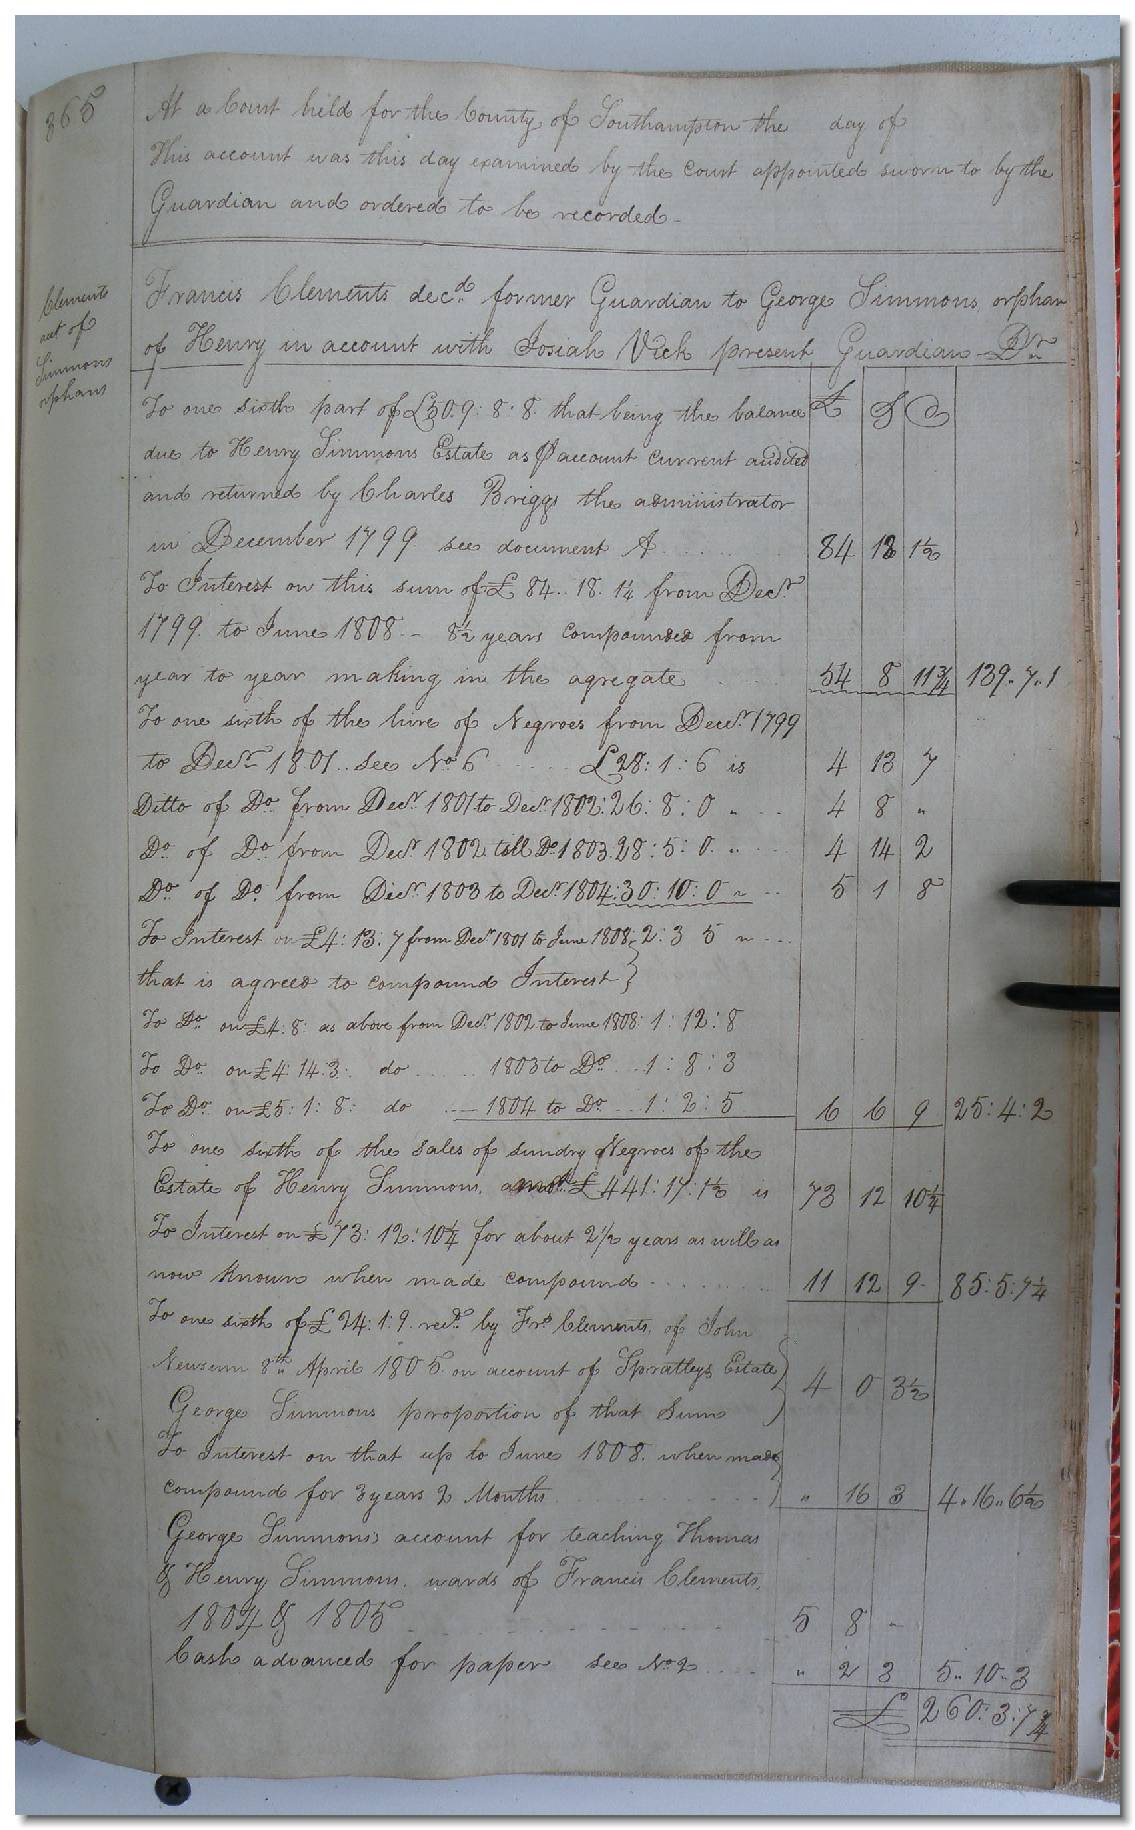 365
At a Court held for the County of Southampton the day of
This account was this day examined by the court appointed sworn to by the
Guardian and ordered to be recorded -
Clements
act of
Simmons
orphans
Francis Clements decd. former Guardian to George Simmons orphan
of Henry in account with Josiah Vick present Guardian - Dr
To one sixth part of £509: 8: 8. that being the balance £ S D
due to Henry Simmons Estate as P account current audited
and returned by Charles Briggs the administrator
in December 1799 see document A . . . . . 84 18 1½
To Interest on this sum of £ 84. 18. 1¼ from Decr.
1799. to June 1808. - 8½ years compounded from
year to year making in the agregate . . . . 54 8 11¾ 139. 7. 1
To one sixth of the hire of Negroes from Decr. 1799
to Decr. 1801. see No 6 . . . . . £28: 1: 6 is 4 13 7
Ditto of Do. from Decr. 1801 to Decr. 1802: 26: 8: 0 " . . . 4 8 "
Do. of Do. from Decr. 1802 till Do 1803. 28: 5: 0. " . . . 4 14 2
Do. of Do. from Decr. 1803 to Decr. 1804: 30: 10: 0 " . . 5 1 8
To Interest on £4: 13: 7 from Decr. 1801 to June 1808: 2: 3 5 " . . .
that is agreed to compound Interest }
To Do. on £4: 8: as above from Decr. 1802 to June 1808: 1: 12: 8
To Do. on £4: 14: 3: do . . . . . 1803 to Do. . . 1: 8: 3
To Do. on £5: 1: 8: do . . . 1804 to Do. . . 1: 2: 5 6 6 9 25: 4: 2
To one sixth of the sales of sundry Negroes of the
Estate of Henry Simmons. amot. £ 441: 17: 1½ is 73 12 10¼
To Interest on £73: 12: 10¼ for about 2½ years as will as
now known when made compound . . . . . . . 11 12 9 - 85: 5: 7¼
To one sixth of £24: 1: 9. recd. by Frs. Clements, of John
Newsum 8th April 1805. on account of Spratleys Estate } 4 0 3½
George Simmons proportion of that Sum )
To Interest on that up to June 1808. when made }
compound for 3 years 2 Months . . . . . . . ) " 16 3 4. 16. 6½
George Simmons's account for teaching Thomas
& Henry Simmons. wards of Francis Clements.
1804 & 1805 . . . . . . . . 5 8 -
Cash advanced for paper see No. 2 . . . . " 2 3 5. 10. 3
£ 260: 3: 7¾